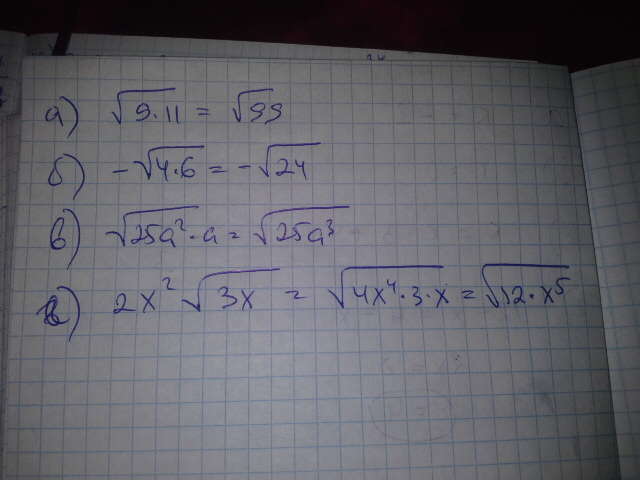 а) √9·11 = √99
б) -√4·6 = -√24
в) √25a²·a = √25a³
г) 2x²√3x = √4x⁴·3·x = √12·x⁵